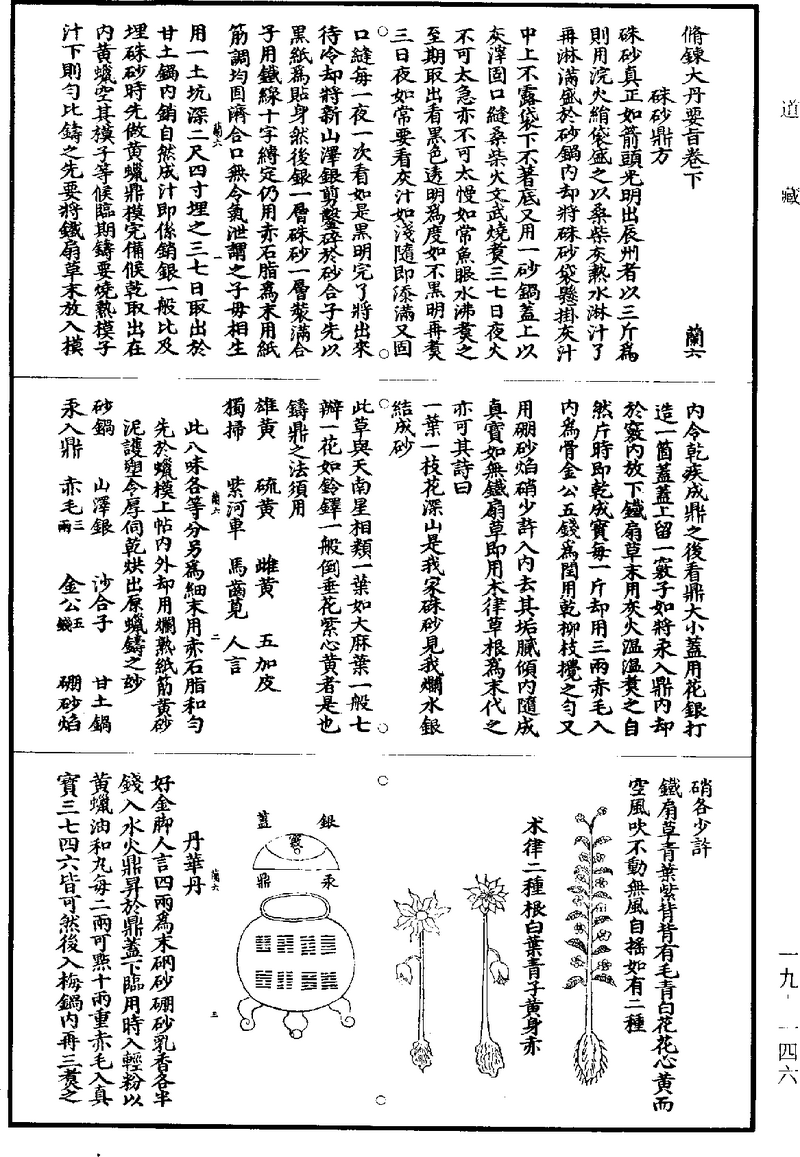 道藏
脩鍊大丹要旨卷下
蘭六
硃砂鼎方
硃砂真正如箭頭光明出辰州者以三斤為
則用浣火絹袋盛之以桑柴灰熱水淋汁了
再淋滿盛於砂鍋內却將硃砂袋懸掛灰汁
中上不露袋下不著底又用一砂鍋蓋上以
灰澤固口縫桑柴火文武燒煑三七日夜火
不可太急亦不可太慢如常魚眼水沸煑之
至期取出看黑色透明為度如不黑明再煑
三日夜如常要看灰汁如淺隨即添滿又固
口縫每一夜一次看如是黑明完了將出來
待冷却將新山澤銀剪鑿碎於砂合子先以
黑紙為貼身然後銀一層硃砂一層裝滿合
子用鐵線十字縛定仍用赤石脂為末用紙
筋調均固濟合口無令氣泄謂之子母相生
蘭六
一
用一土坑深二尺四寸埋之三七日取出於
甘土鍋內銷自然成汁即係銷銀一般比及
埋硃砂時先做黃蠟鼎模完備候乾取出在
內黃蠟空其模子等候臨期鑄要燒熱模子
汁下則勻比鑄之先要將鐵扇草末放入模
內令乾疾成鼎之後看鼎大小蓋用花銀打
造一箇蓋蓋上留一竅子如將汞入鼎內却
於竅內放下鐵扇草末用灰火溫溫煑之自
然片時即乾成寶每一斤却用三兩赤毛入
內為骨金公五錢為閏用乾柳枝攪之勻又
用硼砂焰硝少許入內去其垢膩傾內隨成
真寶如無鐵扇草即用木律草根為末代之
亦可其詩曰
一葉一枝花深山是我家硃砂見我爛水銀
結成砂
此草與天南星相類一葉如大麻葉一般七
瓣一花如鈴鐸一般倒垂花紫心黃者是也
鑄鼎之法須用
雄黃 硫黃 雌黃 五加皮
蘭六
二
獨掃 紫河車 馬齒莧 人言
此八味各等分另為細末用赤石脂和勻
先於蠟模上帖內外却用爛熟紙筋黃砂
泥護塑令厚伺乾烘出原蠟鑄之玅
砂鍋 山澤銀 沙合子 甘土鍋
汞入鼎 赤毛三兩 金公五錢 硼砂焰
硝各少許
鐵扇草青葉紫背背有毛青白花花心黃而
空風吹不動無風自搖如有二種
木律二種根白葉青子黃身赤
銀蓋
竅
汞鼎
丹華丹
蘭六
三
好金脚人言四兩為末硇砂硼砂乳香各半
錢入水火鼎昇於鼎蓋下臨用時入輕粉以
黃蠟油和丸每二兩可㸃十兩重赤毛入真
寶三七四六皆可然後入梅鍋內再三煑之
一九-一四六